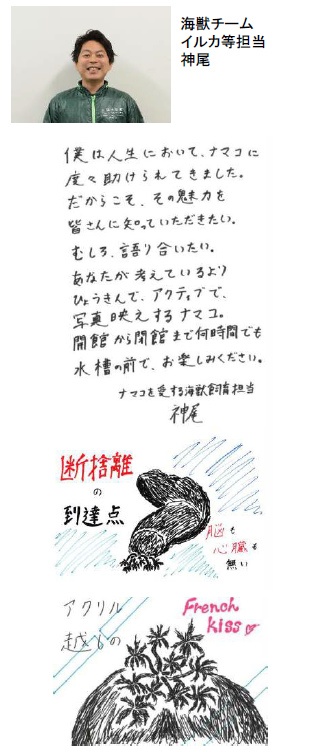 海獣チーム
イルカ等担当
神尾
僕は人生において、ナマコに
度々助けられてきました。
だからこそ、その魅力を
皆さんに知っていただきたい。
むしろ、語り合いたい。
あなたが考えているより
ひょうきんで、アクティブで、
写真映えするナマコ。
開館から閉館まで何時間でも
水槽の前で、お楽しみください。
ナマコを愛する海獣飼育担当
神尾
断捨離
の
到達点
脳も
心臓も
無い
アクリル
越しの
French
kiss